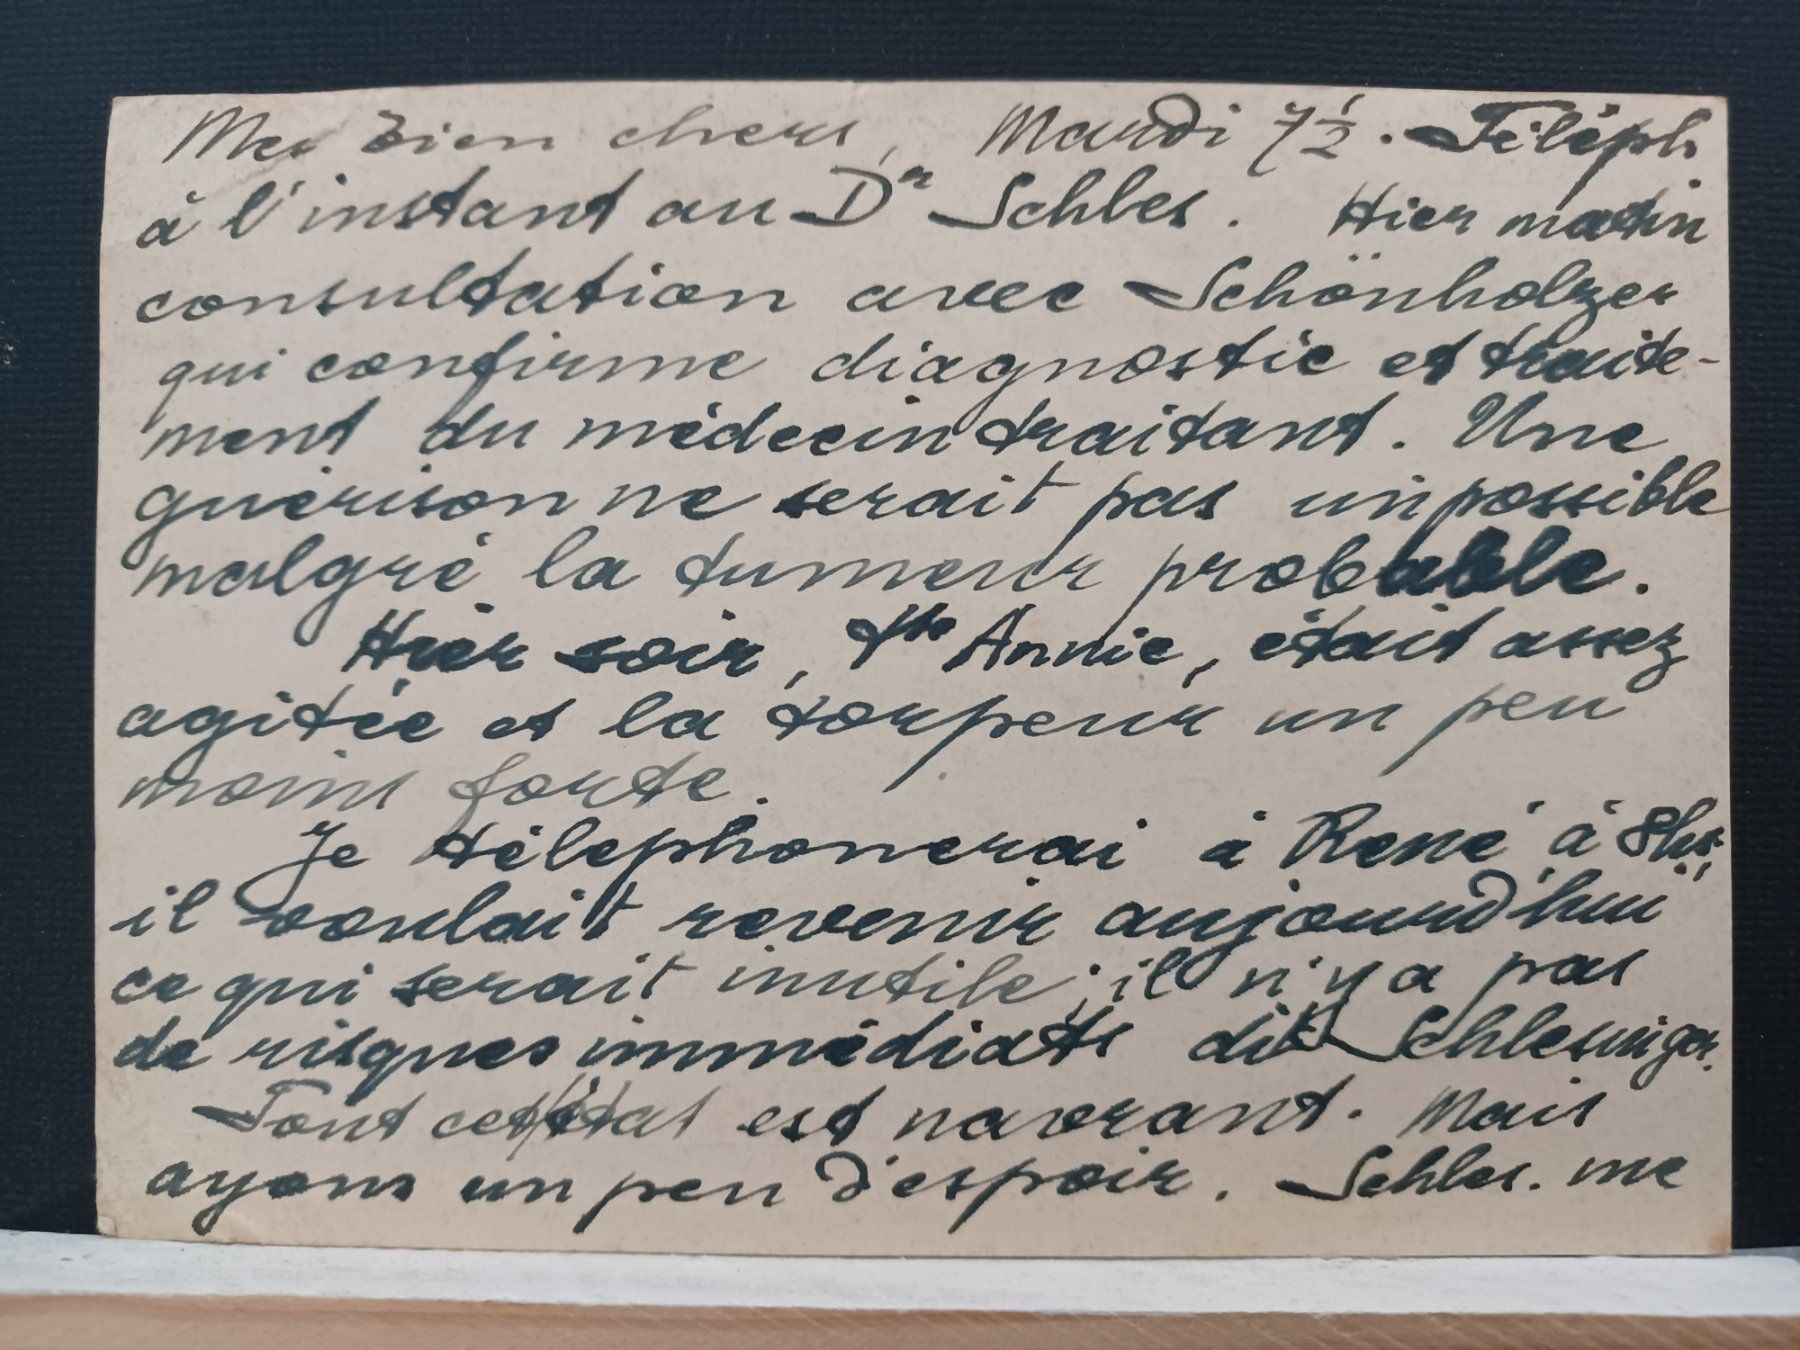 Mes bien chers, Mardi 7½. Téléph
à l'instant au Dr Schles. Hier matin
consultation avec Schönholzer
qui confirme diagnostic et traite-
ment du médecin traitant. Une
guérison ne serait pas impossible
malgré la tumeur probable.
Hier soir, tte Annie, était assez
agitée et la torpeur un peu
moins forte.
Je téléphonerai à René à 8hs.
il voulait revenir aujourd'hui
ce qui serait inutile; il n'y a pas
de risques immédiats dit Schlesinger.
Tout cet état est navrant. Mais
ayons un peu d'espoir. Schles. me